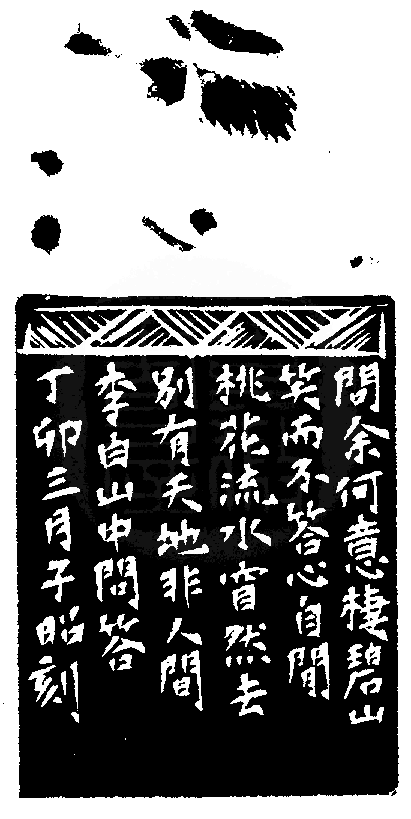 問余何意棲碧山
笑而不答心自閒
桃花流水窅然去
別有天地非人間
李白山中問答
丁卯三月子昭刻